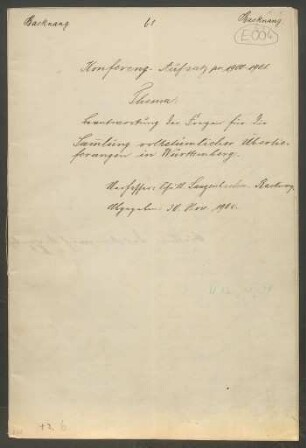 Backnang 61 Backnang
E 004
Konferenz-Aufsatz pro 1900-1901
Thema:
Beantwortung der Fragen für die
Sammlung volkstümlicher Überlie-
ferungen in Württemberg.
Verfasser: Backnang
Abgegeben: 30. Nov. 1900.